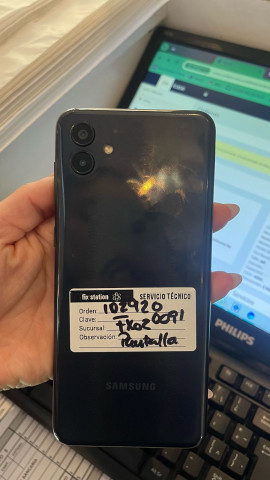 fix station SERVICIO TÉCNICO
Orden: 102920
Clave: 0091
Sucursal: tko2
Observación: Pantalla
SAMSUNG
PHILIPS